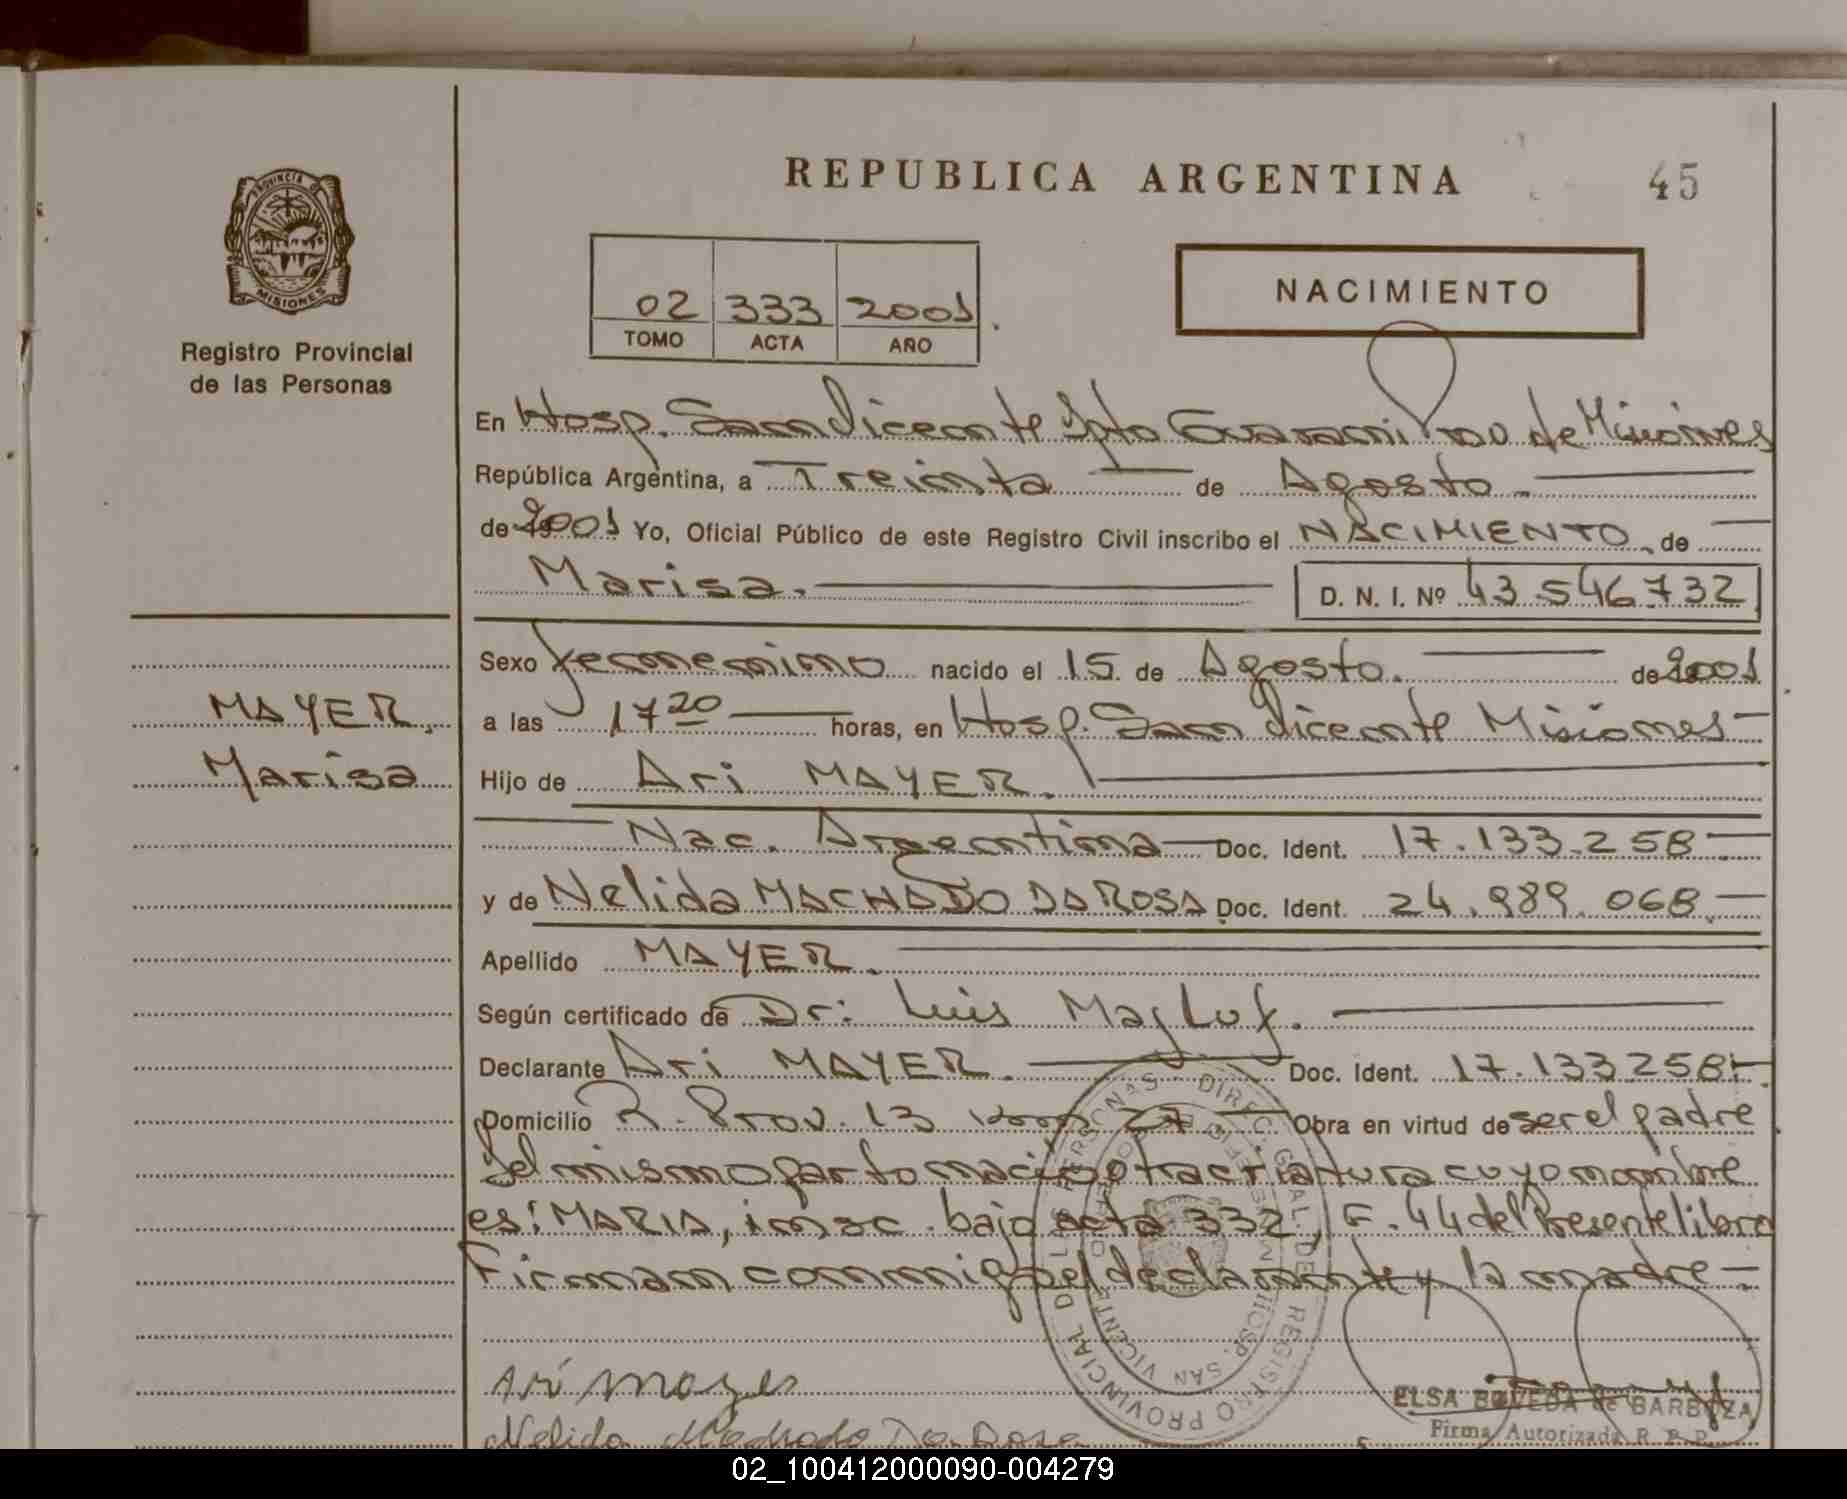 REPUBLICA ARGENTINA
45
PROVINCIA D MISIONES
Registro Provincial
de las Personas
02 333 2001
TOMO ACTA AÑO
NACIMIENTO
En Hosp. San Vicente Dpto Guarani Prov de Misiones
República Argentina, a Treinta de Agosto
de 2001 Yo, Oficial Público de este Registro Civil inscribo el NACIMIENTO de
Marisa. D. N. I. Nº 43.546.732
Sexo femenino nacido el 15 de Agosto. de 2001
a las 17 20 horas, en Hosp. San Vicente Misiones
Hijo de Ari MAYER.
Nac. Argentina Doc. Ident. 17.133.258
y de Nelida MACHADO DA ROSA Doc. Ident. 24.989.068
Apellido MAYER.
Según certificado de Dr: Luis
Declarante Ari MAYER. Doc. Ident. 17.133258
Domicilio R. Prov. 13 Km 27 Obra en virtud de ser el padre
del mismo parto nacio otra criatura cuyo nombre
es: MARIA, insc. bajo acta 332, F. 44 del Presente libro
Firman conmigo el declarante y la madre
MAYER,
Marisa
Ari Mayer
Nelida Machado Da Rosa
DIREC. GRAL. DEL REGISTRO PROVINCIAL DE LAS PERSONAS
HOSP. SAN VICENTE
ELSA BOVEDA de BARBOZA
Firma Autorizada R. P. P.
02_100412000090-004279